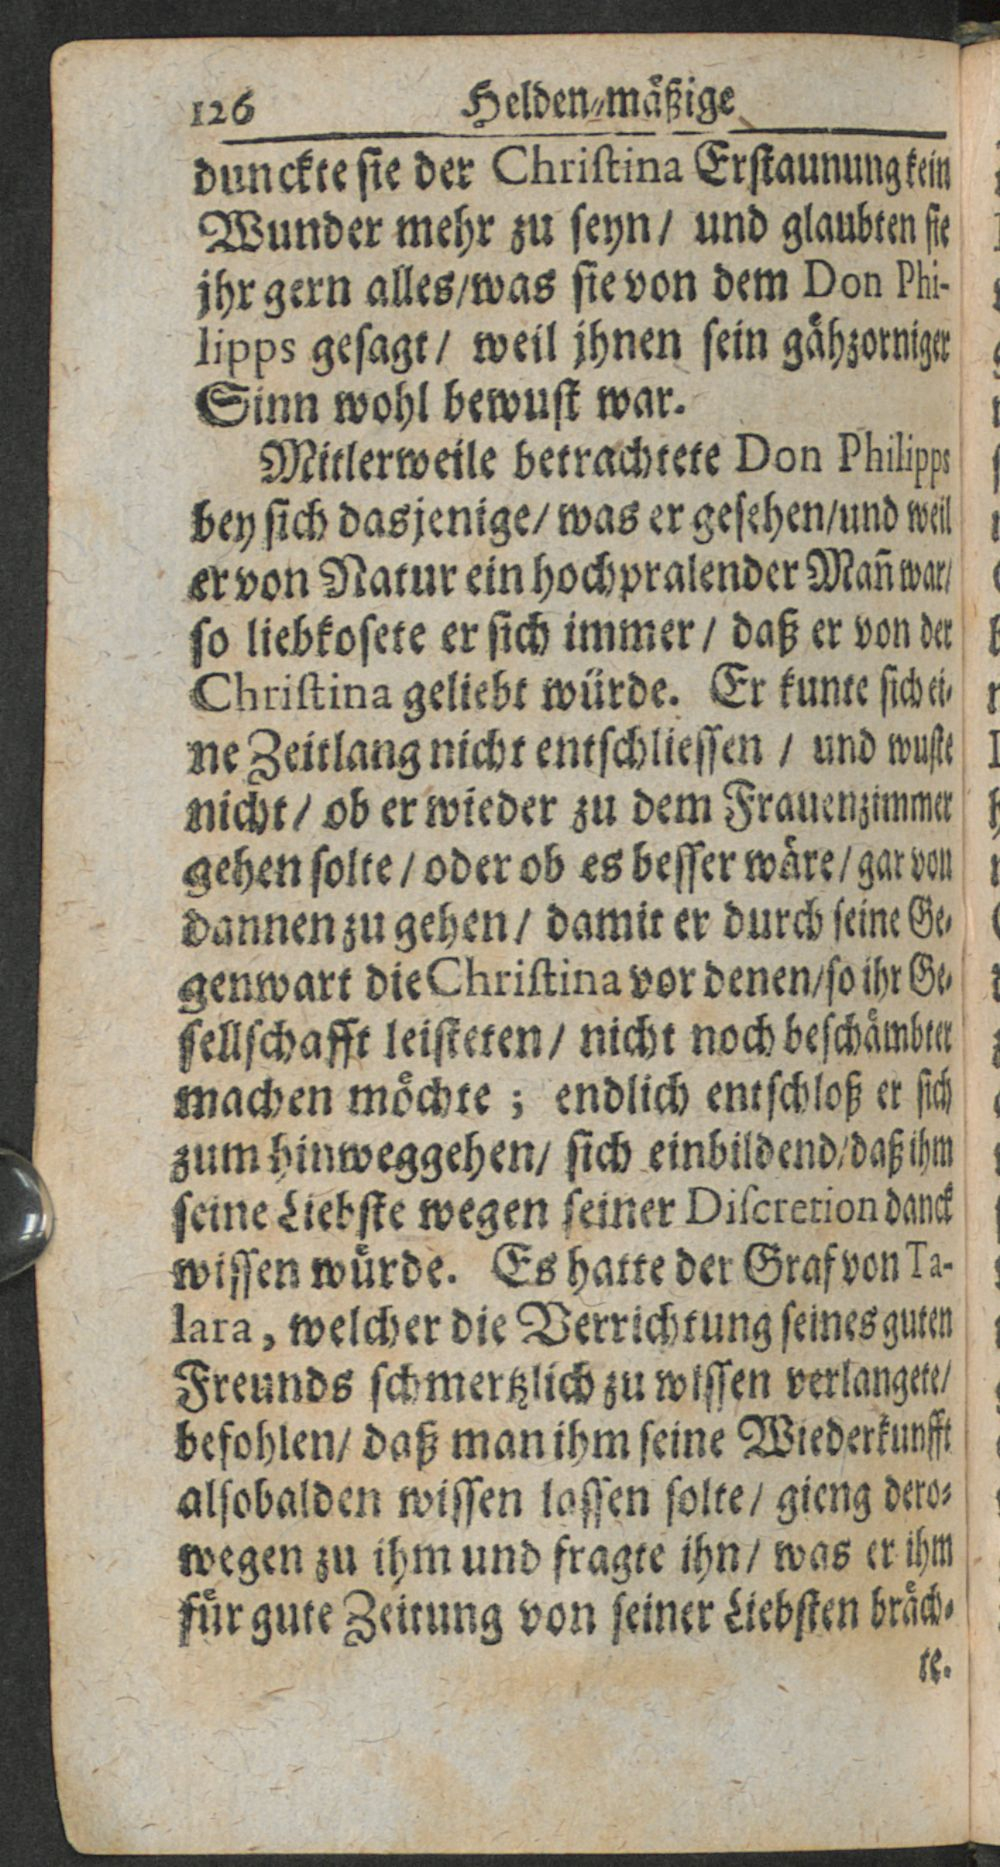 126 Helden-mäßige
dunckte sie der Christina Erstaunung kein
Wunder mehr zu seyn/ und glaubten sie
jhr gern alles/was sie von dem Don Phi-
lipps gesagt/ weil jhnen sein gähzorniger
Sinn wohl bewust war.
Mitlerweile betrachtete Don Philipps
bey sich dasjenige/ was er gesehen/und weil
er von Natur ein hochpralender Mañ war/
so liebkosete er sich immer/ daß er von der
Christina geliebt würde. Er kunte sich ei-
ne Zeitlang nicht entschliessen / und wuste
nicht/ ob er wieder zu dem Frauenzimmer
gehen solte/ oder ob es besser wäre/ gar von
dannen zu gehen/ damit er durch seine Ge-
genwart die Christina vor denen/so ihr Ge-
sellschafft leisteten/ nicht noch beschämbter
machen möchte; endlich entschloß er sich
zum hinweggehen/ sich einbildend/daß ihm
seine Liebste wegen seiner Discretion danck
wissen würde. Es hatte der Graf von Ta-
lara, welcher die Verrichtung seines guten
Freunds schmertzlich zu wissen verlangete/
befohlen/ daß man ihm seine Wiederkunfft
alsobalden wissen lassen solte/ gieng dero-
wegen zu ihm und fragte ihn/ was er ihm
für gute Zeitung von seiner Liebsten bräch-
te.